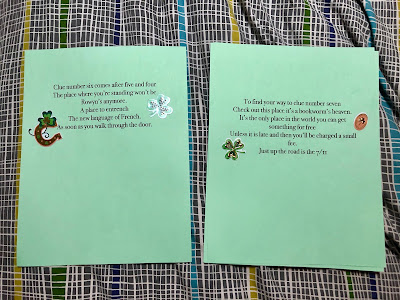 Clue number six comes after five and four
The place where you're standing won't be
Rowyn's anymore.
A place to entreach
The new language of French,
As soon as you walk through the door.
To find your way to clue number seven
Check out this place it's a bookworm's heaven.
It's the only place in the world you can get
something for free
Unless it is late and then you'll be charged a small
fee.
Just up the road is the 7/11